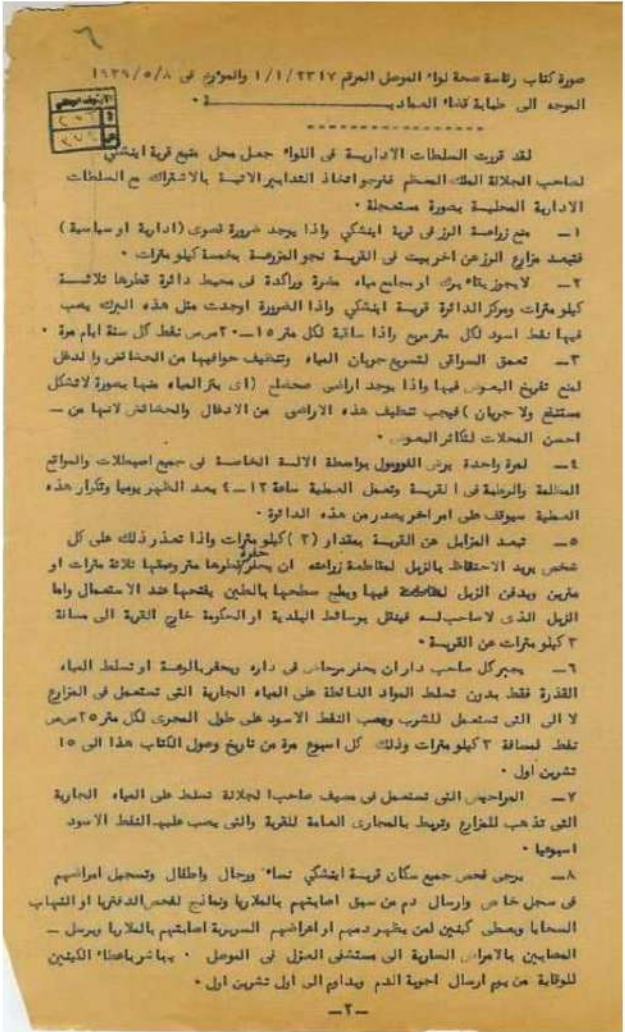 ٦
صورة كتاب رئاسة صحة لواء الموصل المرقم ٢٣١٧/١/١ والمؤرخ فى ١٩٣٩/٥/٨
الموجه الى طبابة قضاء العمادية ٠
لقد قررت السلطات الادارية فى اللواء جعل محل متبع قرية اينشكي
لصاحب الجلالة الملك المعظم فنرجو اتخاذ التدابير الاتية بالاشتراك مع السلطات
الادارية المحلية بصورة مستعجلة ٠
١ــ منع زراعة الرز فى قرية اينشكي واذا يوجد ضرورة قصوى (ادارية او سياسية)
فتبعد مزارع الرز عن اخر بيت فى القرية نحو المزرعة بخمسة كيلو مترات ٠
٢ــ لا يجوز بقاء برك او مجامع مياه مضرة وراكدة فى محيط دائرة قطرها ثلاثة
كيلو مترات ومركز الدائرة قرية اينشكي واذا الضرورة اوجدت مثل هذه البرك يصب
فيها نفط اسود لكل متر مربع واذا ساقية لكل متر ١٥ــ٢٠ س س نفط كل ستة ايام مرة ٠
٣ــ تعمق السواقى لتسريع جريان المياه وتنظيف حوافيها من الحشائش والدغل
لمنع تفريخ البعوض فيها واذا يوجد اراضى ضحضاح (اى يتر المياه منها بصورة لا تشكل
مستنقع ولا جريان) فيجب تنظيف هذه الاراضى من الادغال والحشائش لانها من ــ
احسن المحلات لتكاثر البعوض ٠
٤ــ لمرة واحدة يرش الفورمول بواسطة الالة الخاصة فى جميع اصطبلات والمواقع
المظلمة والرطبة فى القرية وتعمل العملية ساعة ١٢ــ٤ بعد الظهر يوميا وتكرار هذه
العملية سيوقف على امر اخر يصدر من هذه الدائرة ٠
٥ــ تبعد المزابل عن القرية بمقدار (٣) كيلو مترات واذا تعذر ذلك على كل
شخص يريد الاحتفاظ بالزبل لمقاطعة زراعته ان يحفر حفرة قطرها متر وعمقها ثلاثة مترات او
مترين ويدفن الزبل فيها ويطم سطحها بالطين يفتحها عند الاستعمال واما
الزبل الذى لا صاحب له فينقل بوسائط البلدية او الحكومة خارج القرية الى مسافة
٣ كيلو مترات عن القرية ٠
٦ــ يجبر كل صاحب دار ان يحفر مرحاض فى داره ويحفر بالوعة او تسلط المياه
القذرة فقط بدون تسلط المواد الغائطة على المياه الجارية التى تستعمل فى المزارع
لا الى التى تستعمل للشرب ويصب النفط الاسود على طول المجرى لكل متر ٢٥ س س
نفط لمسافة ٣ كيلو مترات وذلك كل اسبوع مرة من تاريخ وصول الكتاب هذا الى ١٥
تشرين اول ٠
٧ــ المراحيض التى تستعمل فى مصيف صاحب الجلالة تسلط على المياه الجارية
التى تذهب للمزارع وتربط بالمجارى العامة للقرية والتى يصب عليها النفط الاسود
اسبوعيا ٠
٨ــ يرجى فحص جميع سكان قرية اينشكي نساء ورجال واطفال وتسجيل امراضهم
فى سجل خاص وارسال دم من سبق اصابتهم بالملاريا ونماذج لفحص الدفتريا او التهاب
السحايا ويعطى كينين لمن يظهر دمهم او اعراضهم السريرية اصابتهم بالملاريا ويرسل ــ
المصابين بالامراض السارية الى مستشفى العزل فى الموصل ٠ يباشر باعطاء الكينين
للوقاية من يوم ارسال اجوبة الدم ويداوم الى اول تشرين اول ٠
ــ٢ــ